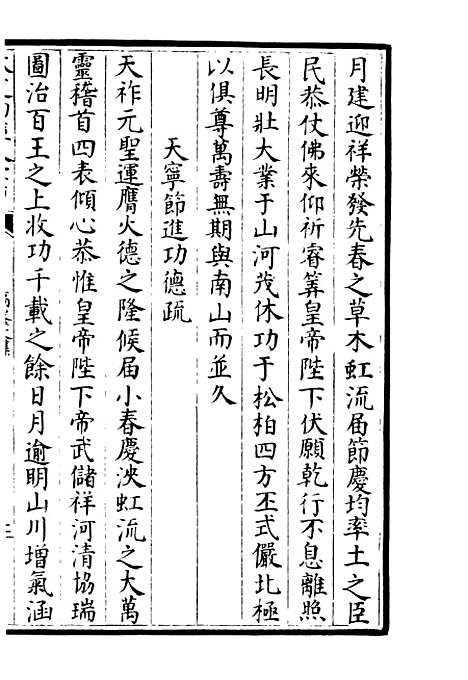 月建迎祥榮發先春之草木虹流屆節慶均率土之臣
民恭仗佛來仰祈睿筭皇帝陛下伏願乾行不息離照
長明壯大業于山河茂休功于松柏四方丕式儼北極
以俱尊萬壽無期與南山而並久
天寧節進功德疏
天祚元聖運膺火德之隆候届小春慶泱虹流之大萬
靈稽首四表傾心恭惟皇帝陛下帝武儲祥河清協瑞
圖治百王之上收功千載之餘日月逾明山川增氣涵